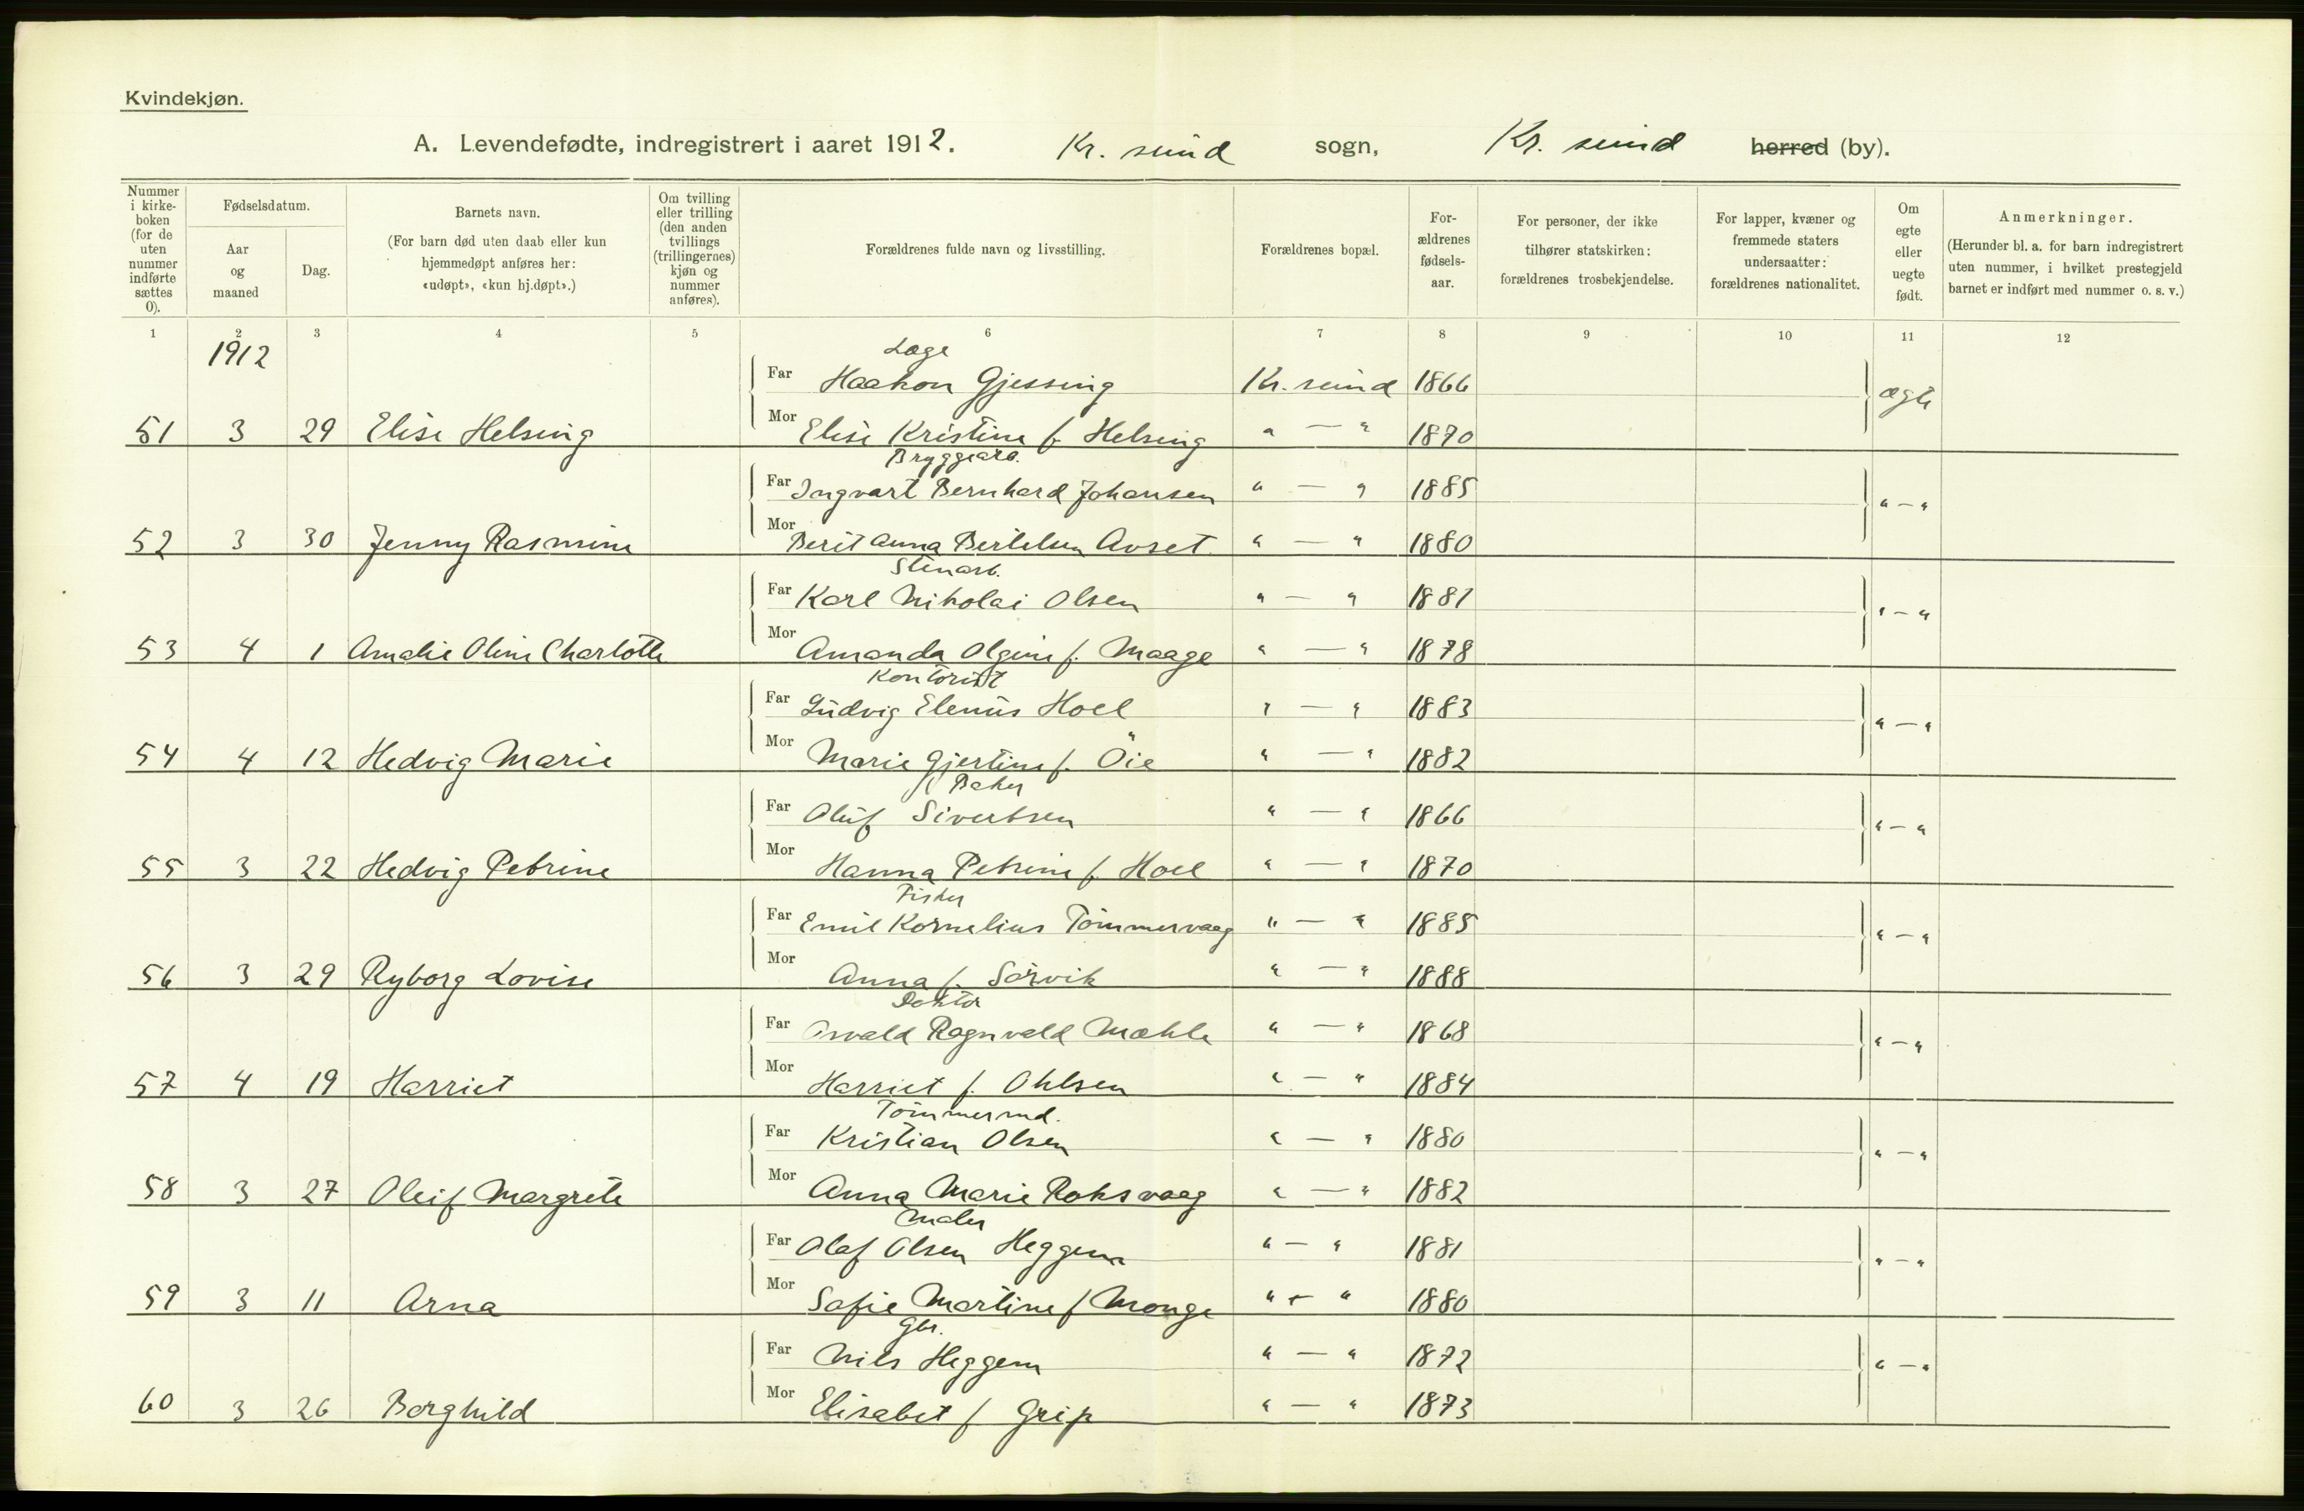 Kvindekjøn.
A. Levendefødte, indregistrert i aaret 1912. Kr. sund sogn, Kr. sund herred (by).
Nummer i kirkeboken (for de uten nummer indførte sættes 0).
Fødselsdatum.
Aar og maaned
Dag.
Barnets navn.
(For barn død uten daab eller kun hjemmedøpt anføres her: «udøpt», «kun hj.døpt».)
Om tvilling eller trilling (den anden tvillings (trillingernes) kjøn og nummer anføres).
Forældrenes fulde navn og livsstilling.
Forældrenes bopæl.
Forældrenes fødselsaar.
For personer, der ikke tilhører statskirken: forældrenes trosbekjendelse.
For lapper, kvæner og fremmede staters undersaatter: forældrenes nationalitet.
Om egte eller uegte født.
Anmerkninger.
(Herunder bl. a. for barn indregistrert uten nummer, i hvilket prestegjeld barnet er indført med nummer o. s. v.)
1 2 3 4 5 6 7 8 9 10 11 12
1912
Læge
Far Haakon Gjessing Kr. sund 1866 ægte
51 3 29 Elise Helsing Mor Elise Kristine f. Helsing " — " 1870
Bryggearb.
Far Ingvart Bernhard Johansen " — " 1885 " — "
52 3 30 Jenny Rasmine Mor Berit Anna Bertelsen Avset " — " 1880
Stenarb.
Far Karl Nikolai Olsen " — " 1881 " — "
53 4 1 Amalie Oline Charlotte Mor Amanda Olgine f. Maage " — " 1878
Kontorist
Far Ludvig Elenus Hoel " — " 1883 " — "
54 4 12 Hedvig Marie Mor Marie Gjertine f. Öie " — " 1882
Baker
Far Oluf Sivertsen " — " 1866 " — "
55 3 22 Hedvig Petrine Mor Hanna Petrine f. Hoel " — " 1870
Fisker
Far Emil Kornelius Tömmervaag " — " 1885 " — "
56 3 29 Ryborg Lovise Mor Anna f. Sörvik " — " 1888
Doktor
Far Osvald Ragnvald Mæhle " — " 1868 " — "
57 4 19 Harriet Mor Harriet f. Ohlsen " — " 1884
Tömmermd.
Far Kristian Olsen " — " 1880 " — "
58 3 27 Oleif Margrete Mor Anna Marie Roksvaag " — " 1882
Maler
Far Olaf Olsen Heggem " — " 1881 " — "
59 3 11 Arna Mor Sofie Martine f Monge " — " 1880
Gbr.
Far Nils Heggem " — " 1872 " — "
60 3 26 Borghild Mor Elisabet f Grip " — " 1873